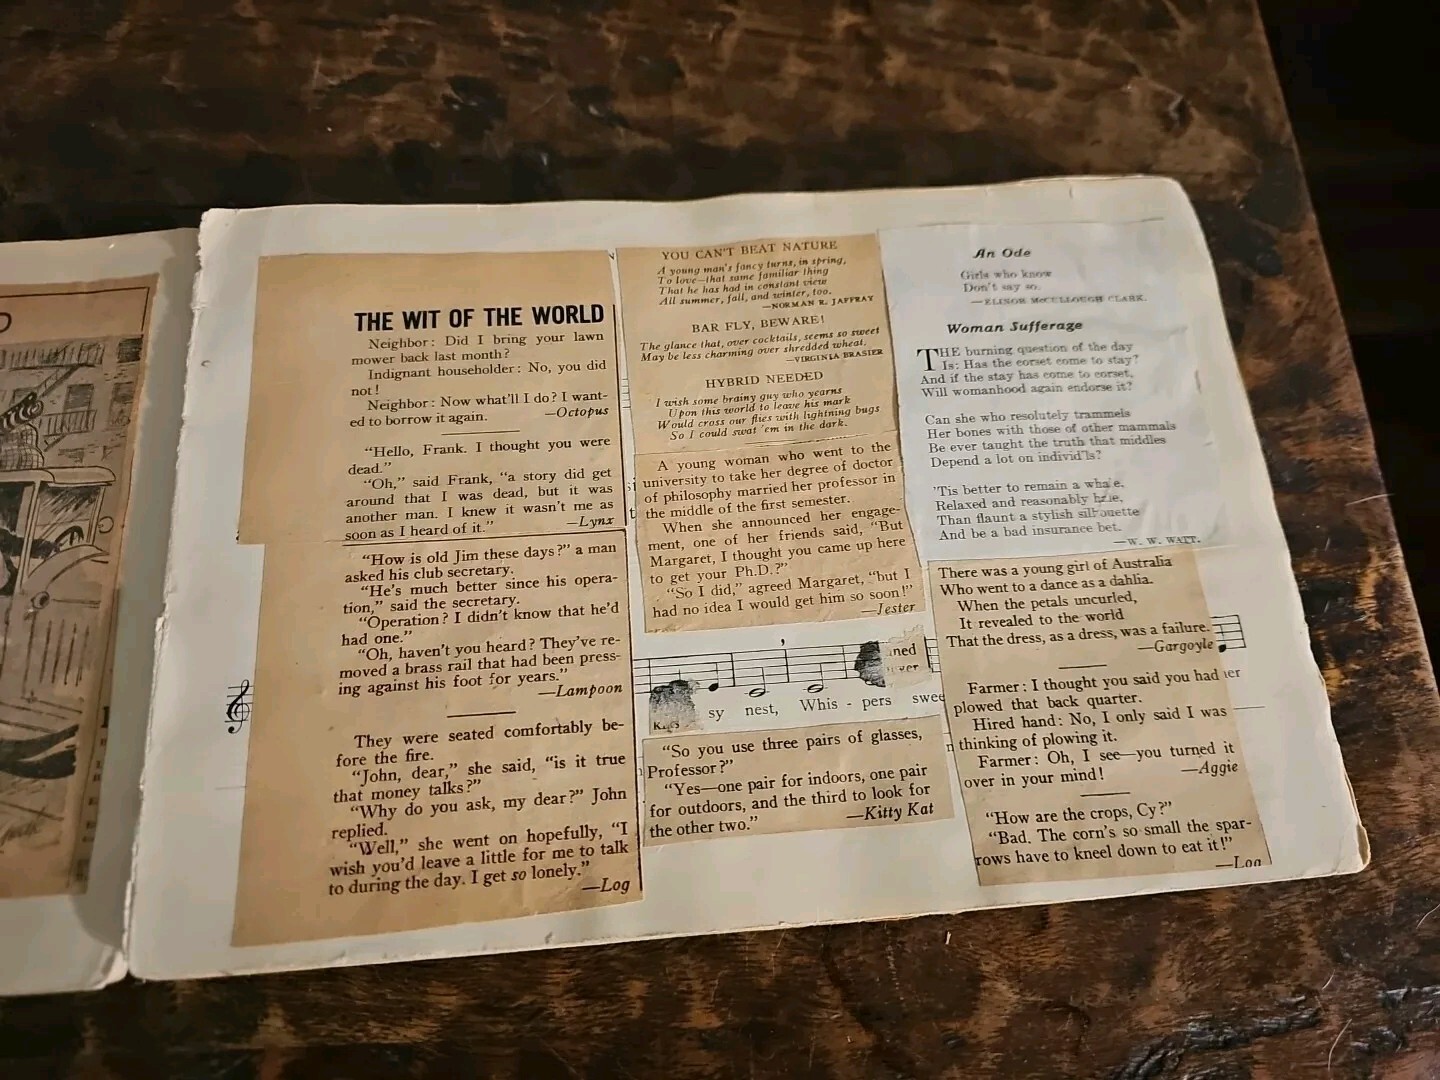 THE WIT OF THE WORLD
Neighbor: Did I bring your lawn
mower back last month?
Indignant householder: No, you did
not!
Neighbor: Now what'll I do? I want-
ed to borrow it again. —Octopus
"Hello, Frank. I thought you were
dead."
"Oh," said Frank, "a story did get
around that I was dead, but it was
another man. I knew it wasn't me as
soon as I heard of it." —Lynx
"How is old Jim these days?" a man
asked his club secretary.
"He's much better since his opera-
tion," said the secretary.
"Operation? I didn't know that he'd
had one."
"Oh, haven't you heard? They've re-
moved a brass rail that had been press-
ing against his foot for years."
—Lampoon
They were seated comfortably be-
fore the fire.
"John, dear," she said, "is it true
that money talks?"
"Why do you ask, my dear?" John
replied.
"Well," she went on hopefully, "I
wish you'd leave a little for me to talk
to during the day. I get so lonely."
—Log
YOU CAN'T BEAT NATURE
A young man's fancy turns, in spring,
To love—that same familiar thing
That he has had in constant view
All summer, fall, and winter, too.
—NORMAN R. JAFFRAY
BAR FLY, BEWARE!
The glance that, over cocktails, seems so sweet
May be less charming over shredded wheat.
—VIRGINIA BRASIER
HYBRID NEEDED
I wish some brainy guy who yearns
Upon this world to leave his mark
Would cross our flies with lightning bugs
So I could swat 'em in the dark.
A young woman who went to the
university to take her degree of doctor
of philosophy married her professor in
the middle of the first semester.
When she announced her engage-
ment, one of her friends said, "But
Margaret, I thought you came up here
to get your Ph.D.?"
"So I did," agreed Margaret, "but I
had no idea I would get him so soon!"
—Jester
sy nest, Whis - pers swee
"So you use three pairs of glasses,
Professor?"
"Yes—one pair for indoors, one pair
for outdoors, and the third to look for
the other two." —Kitty Kat
An Ode
Girls who know
Don't say so.
—ELINOR McCULLOUGH CLARK.
Woman Sufferage
THE burning question of the day
Is: Has the corset come to stay?
And if the stay has come to corset,
Will womanhood again endorse it?
Can she who resolutely trammels
Her bones with those of other mammals
Be ever taught the truth that middles
Depend a lot on individ'ls?
'Tis better to remain a whale,
Relaxed and reasonably hale,
Than flaunt a stylish silhouette
And be a bad insurance bet.
—W. W. WATT.
There was a young girl of Australia
Who went to a dance as a dahlia.
When the petals uncurled,
It revealed to the world
That the dress, as a dress, was a failure.
—Gargoyle
Farmer: I thought you said you had
plowed that back quarter.
Hired hand: No, I only said I was
thinking of plowing it.
Farmer: Oh, I see—you turned it
over in your mind! —Aggie
"How are the crops, Cy?"
"Bad. The corn's so small the spar-
rows have to kneel down to eat it!"
—Log